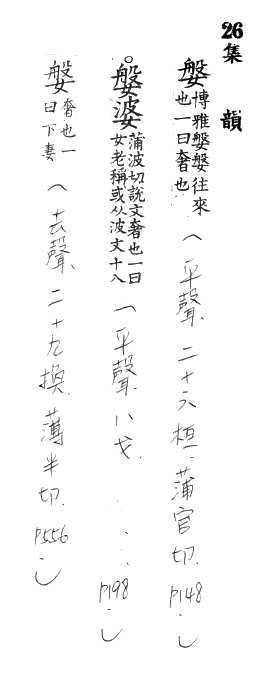 26
集韻
媻博雅媻媻往來也一曰奢也(平聲.二十六桓.蒲官切.P148.)
。媻婆蒲波切說文奢也一曰女老稱或从波文十八(平聲.八戈.P198.)
媻奢也一曰下妻(去聲.二十九換.薄半切.P556.)